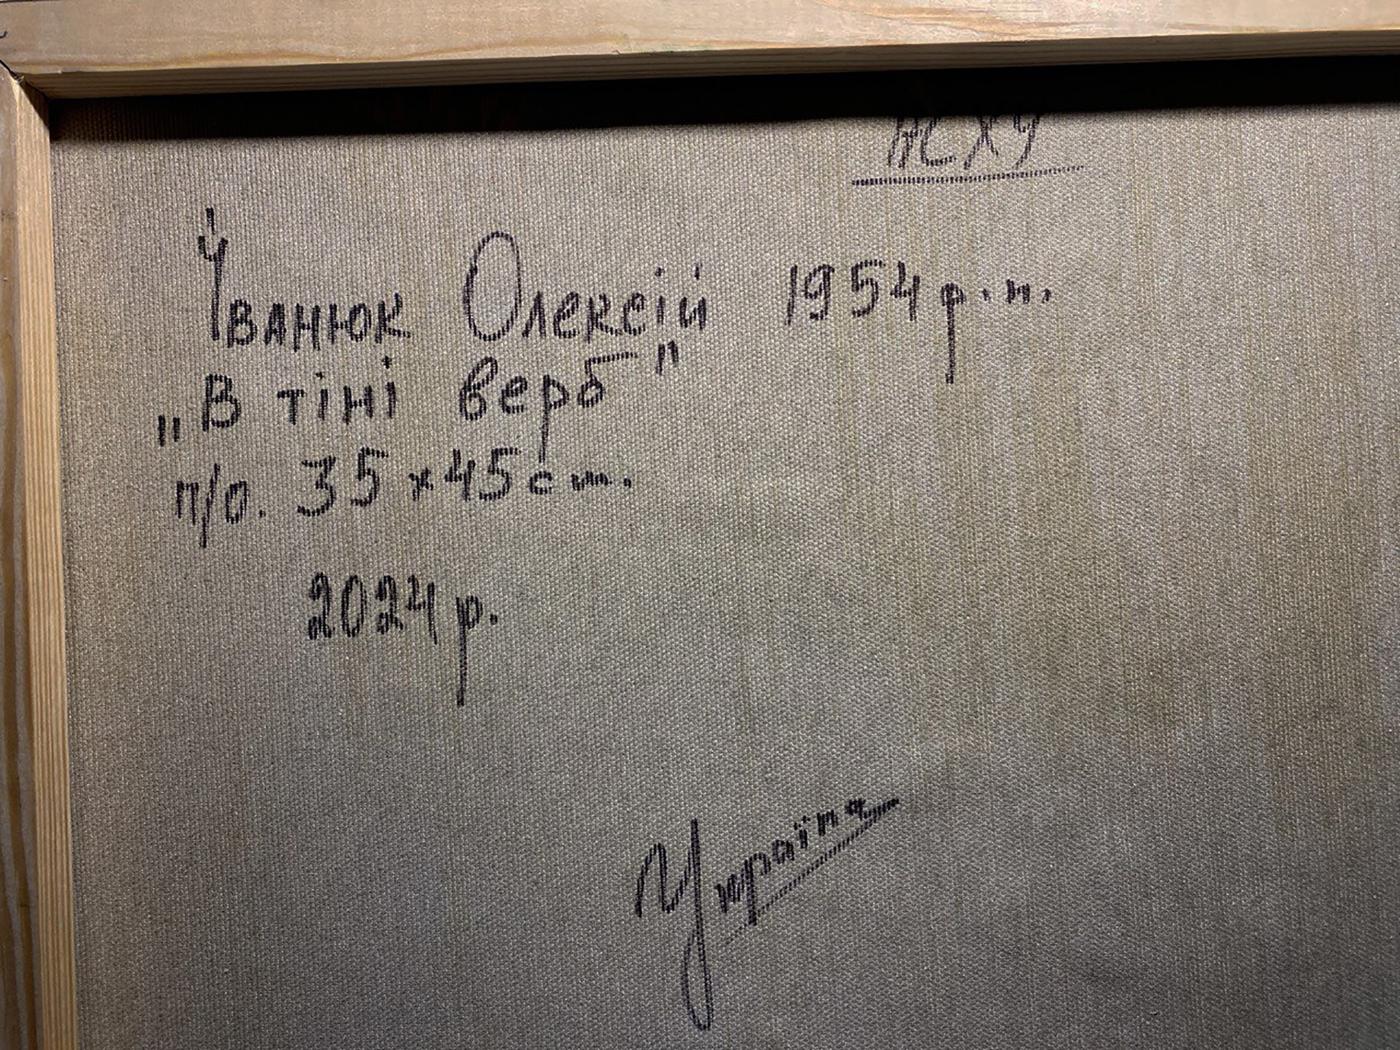 НСХУ
Іванюк Олексій 1954 р.н.
„В тіні верб"
п/о. 35 x 45 см.
2024 р.
Україна